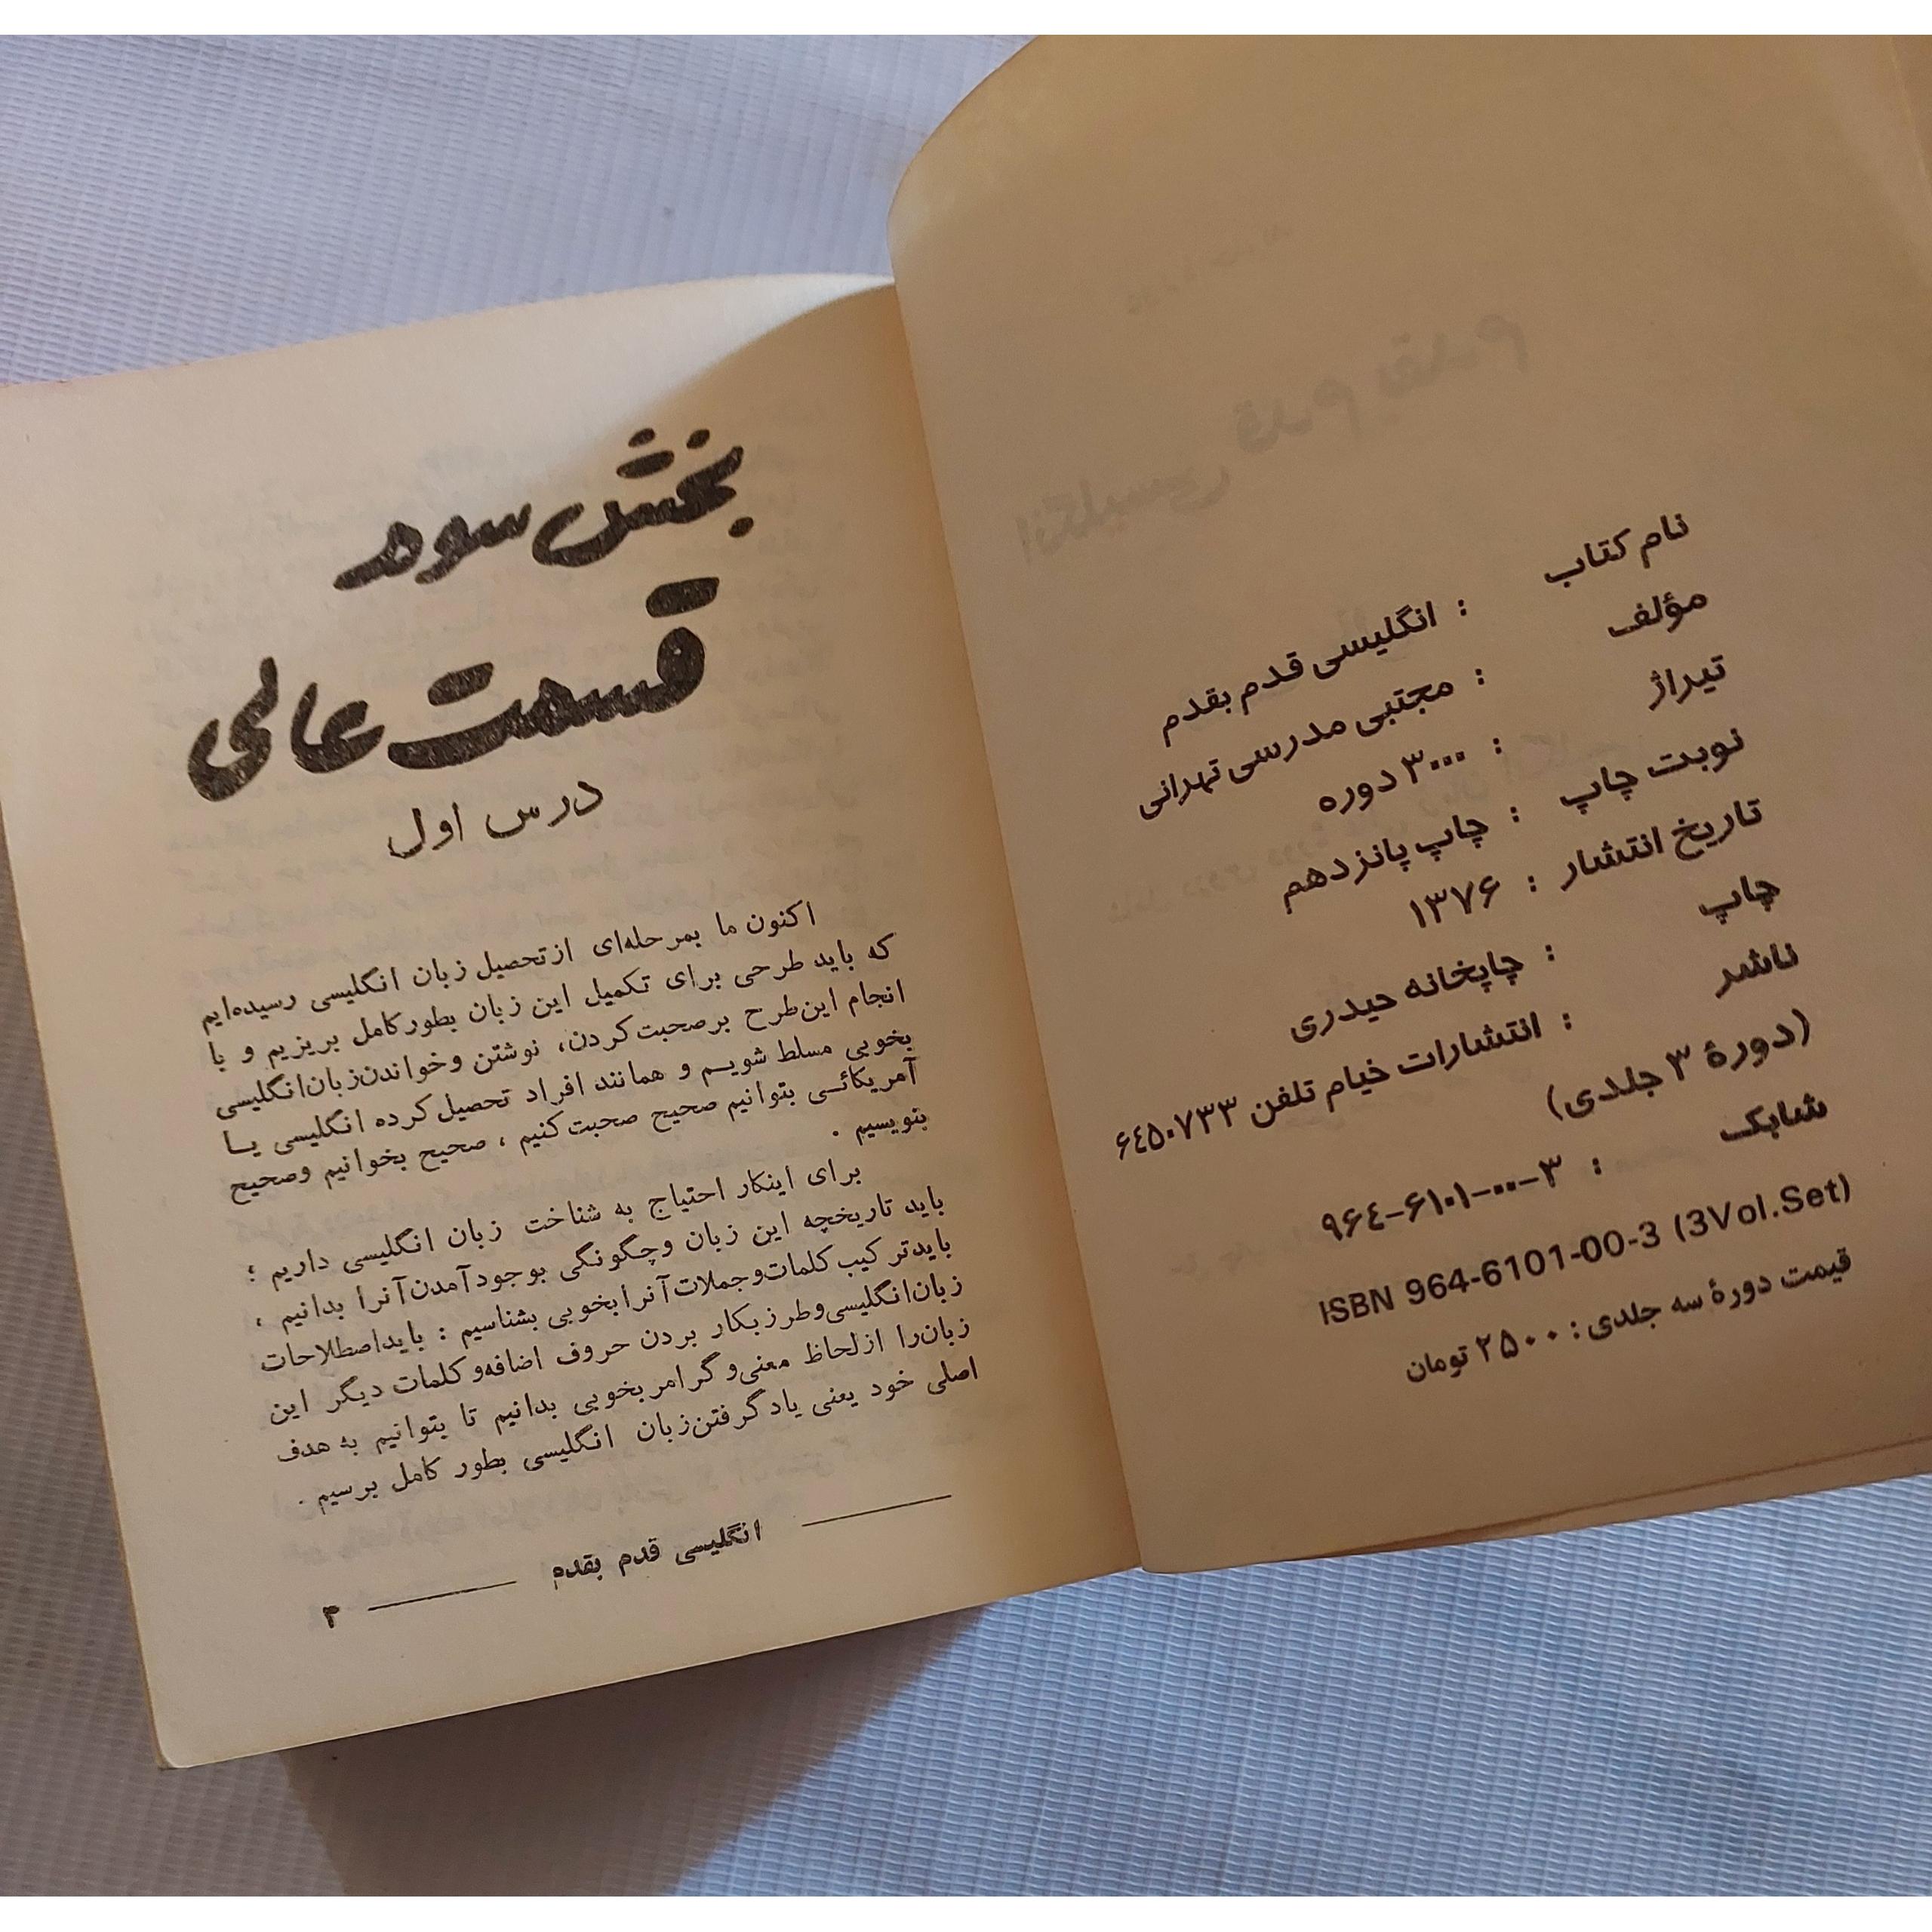 نام کتاب : انگلیسی قدم بقدم
مؤلف : مجتبی مدرسی تهرانی
تیراژ : ۳۰۰۰ دوره
نوبت چاپ : چاپ پانزدهم
تاریخ انتشار : ۱۳۷۶
چاپ : چاپخانه حیدری
ناشر : انتشارات خیام تلفن ۶۴۵۰۷۳۳
(دورهٔ ۳ جلدی)
شابک : ۹۶۴-۶۱۰۱-۰۰-۳
ISBN 964-6101-00-3 (3Vol.Set)
قیمت دورهٔ سه جلدی: ۲۵۰۰ تومان
بخش سوم
قسمت عالی
درس اول
اکنون ما بمرحله‌ای از تحصیل زبان انگلیسی رسیده‌ایم
که باید طرحی برای تکمیل این زبان بطور کامل بریزیم و با
انجام این طرح بر صحبت کردن، نوشتن و خواندن زبان انگلیسی
بخوبی مسلط شویم و همانند افراد تحصیل کرده انگلیسی یا
آمریکائی بتوانیم صحیح صحبت کنیم ، صحیح بخوانیم و صحیح
بنویسیم .
برای اینکار احتیاج به شناخت زبان انگلیسی داریم ؛
باید تاریخچه این زبان و چگونگی بوجود آمدن آنرا بدانیم ،
باید ترکیب کلمات و جملات آنرا بخوبی بشناسیم : باید اصطلاحات
زبان انگلیسی و طرز بکار بردن حروف اضافه و کلمات دیگر این
زبان را از لحاظ معنی و گرامر بخوبی بدانیم تا بتوانیم به هدف
اصلی خود یعنی یاد گرفتن زبان انگلیسی بطور کامل برسیم .
انگلیسی قدم بقدم
۳